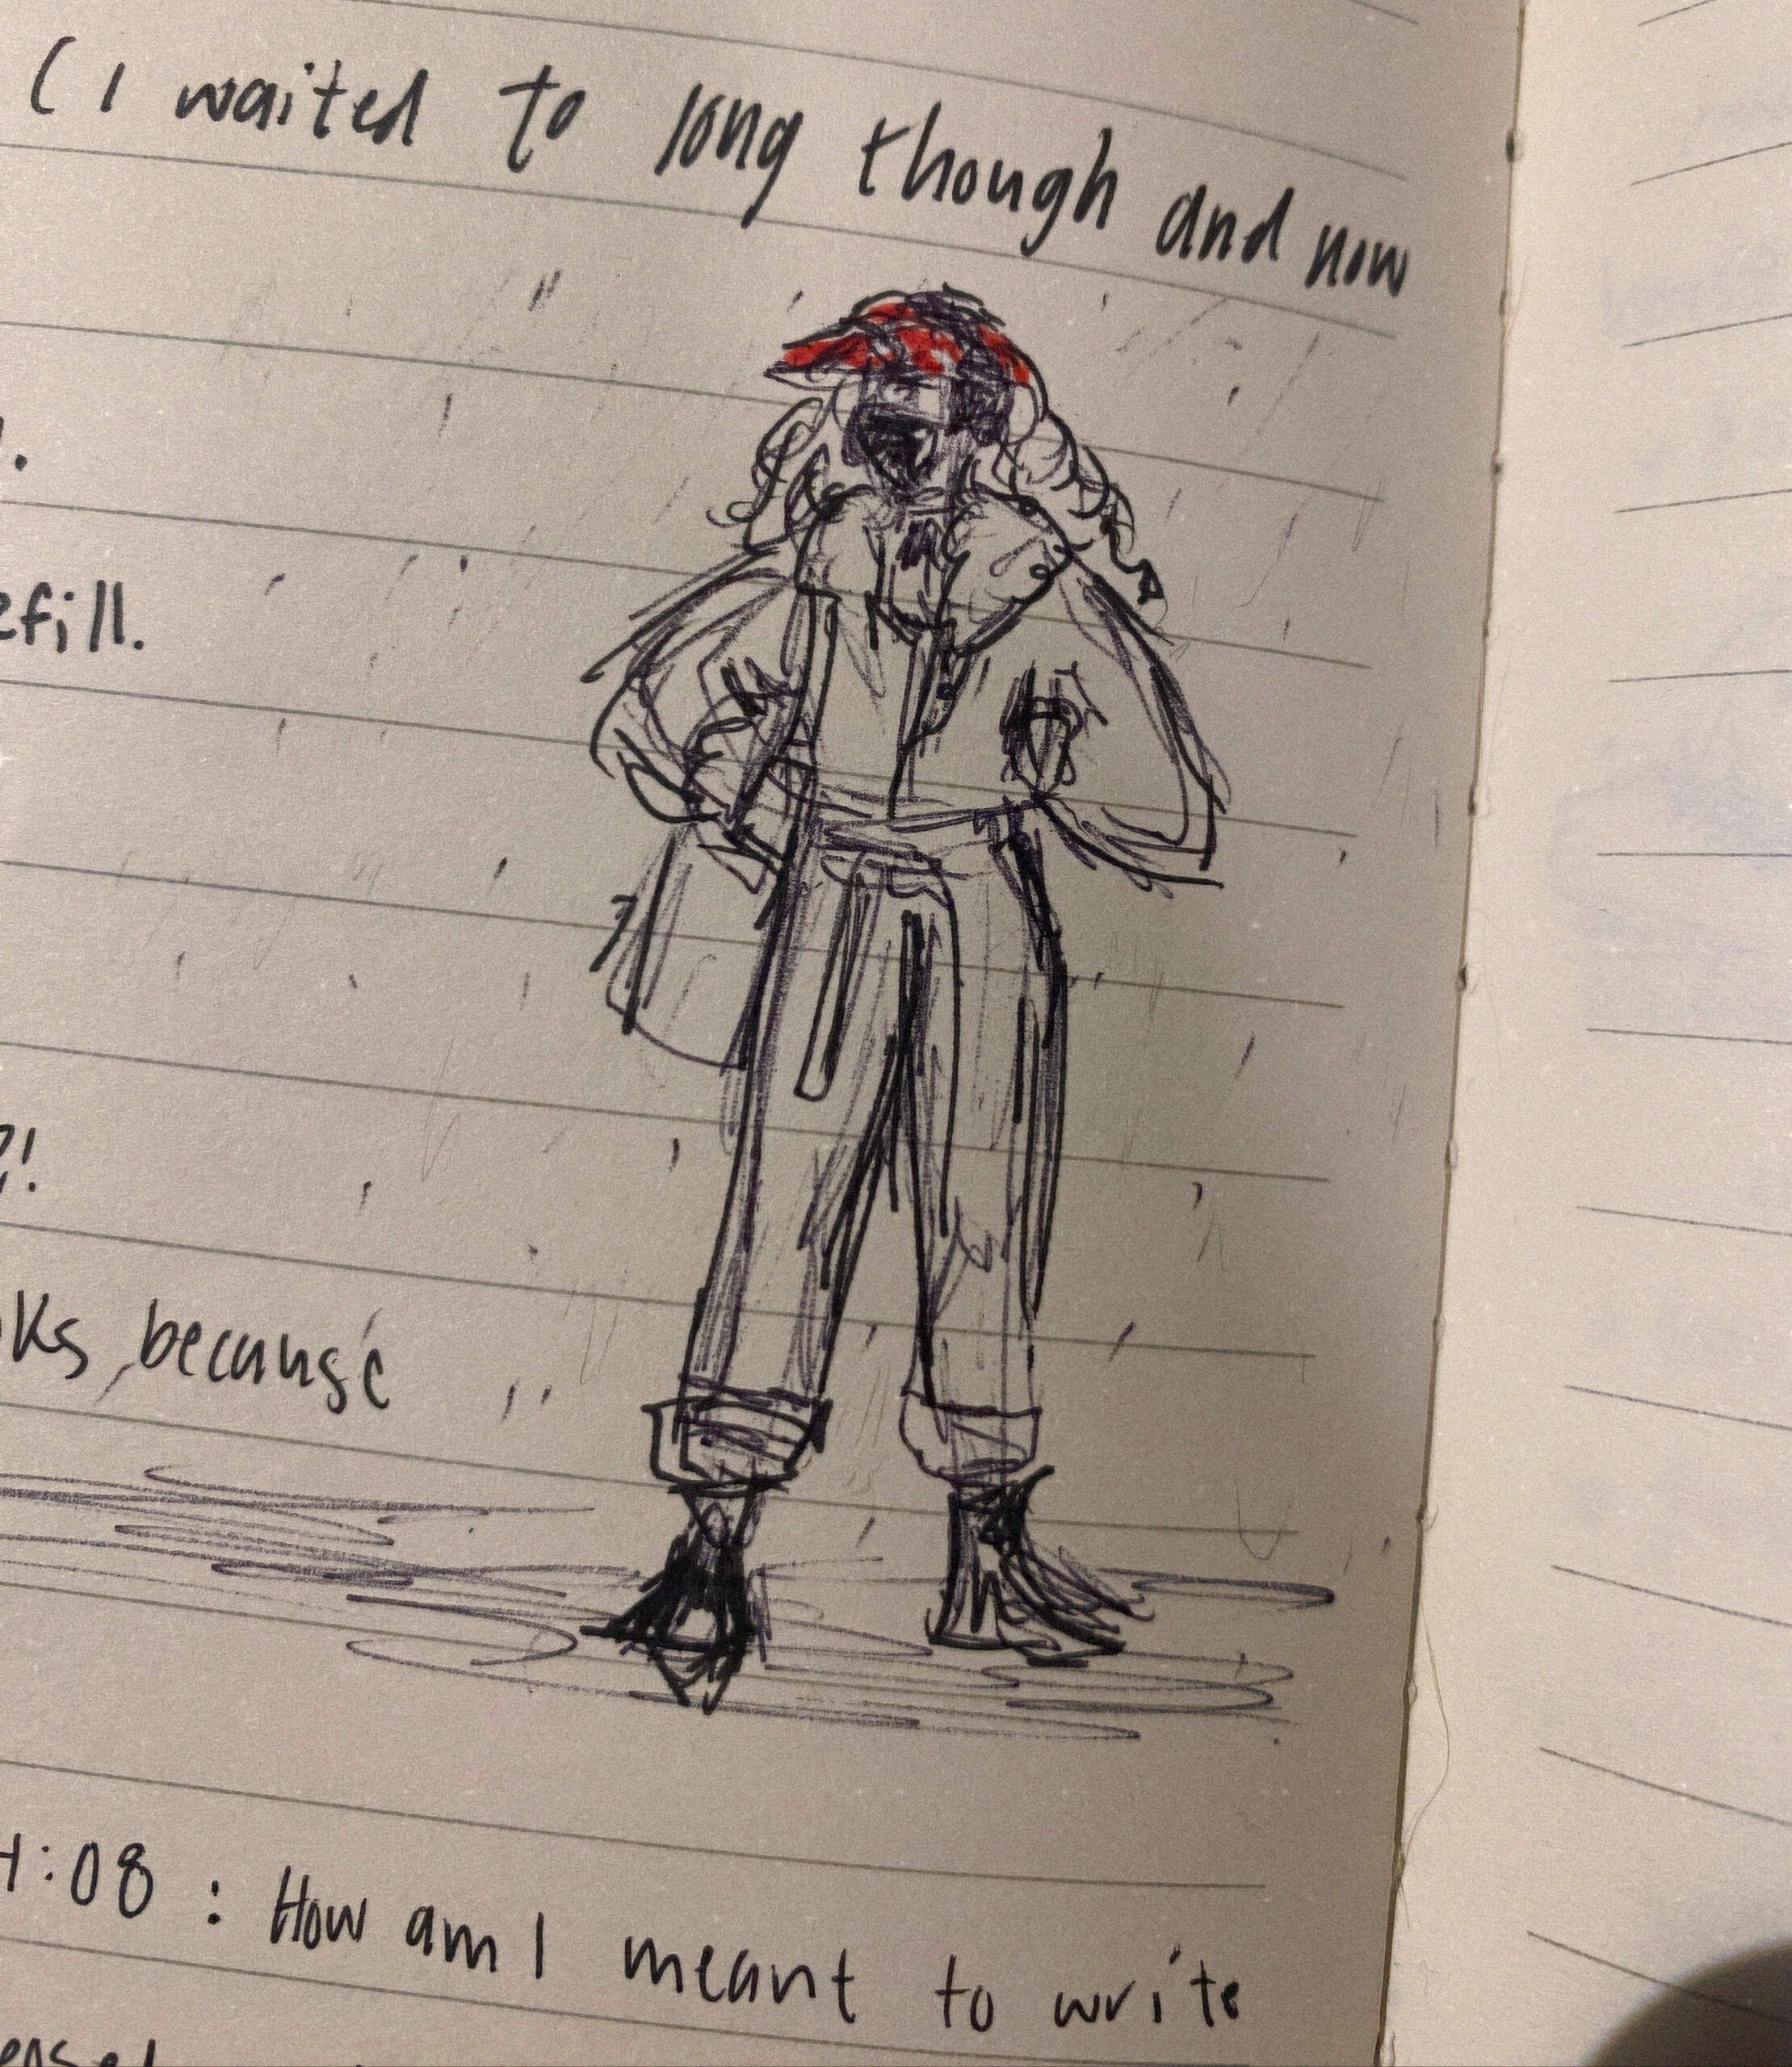 (I waited to long though and now
efill.
?!
ks because
4:08 : How am I meant to write